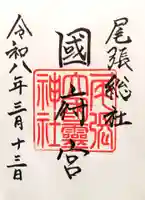 尾張総社
國府宮
尾張
大國霊
神社
令和八年三月十三日